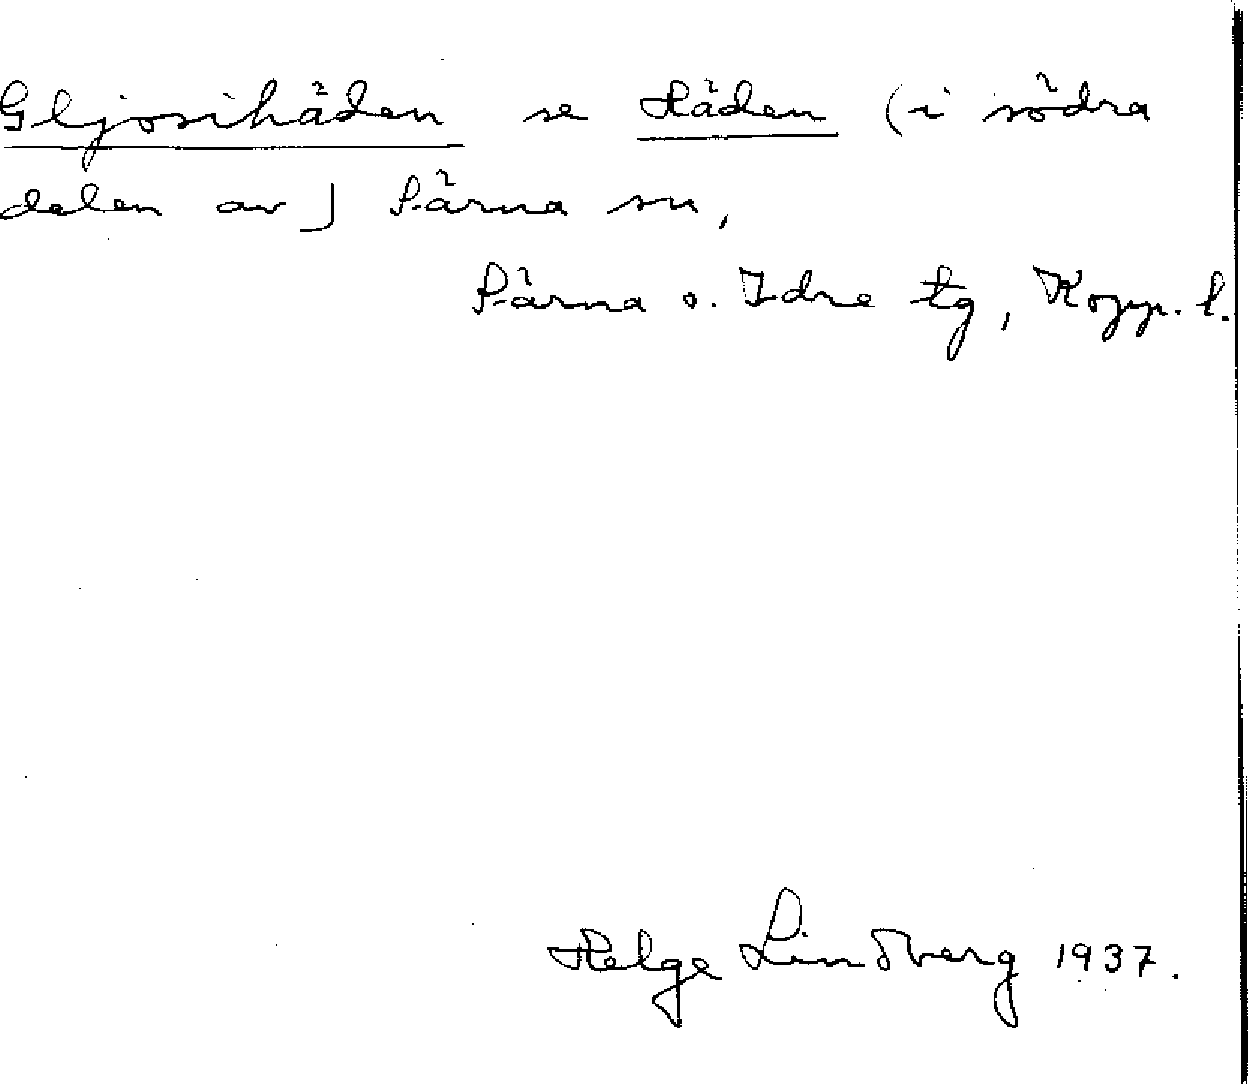 Gljosihäden se Häden (i södra
dalen av) Särna sn,
Särna o. Idre tg, Kopp. l.
Helge Lindberg 1937.